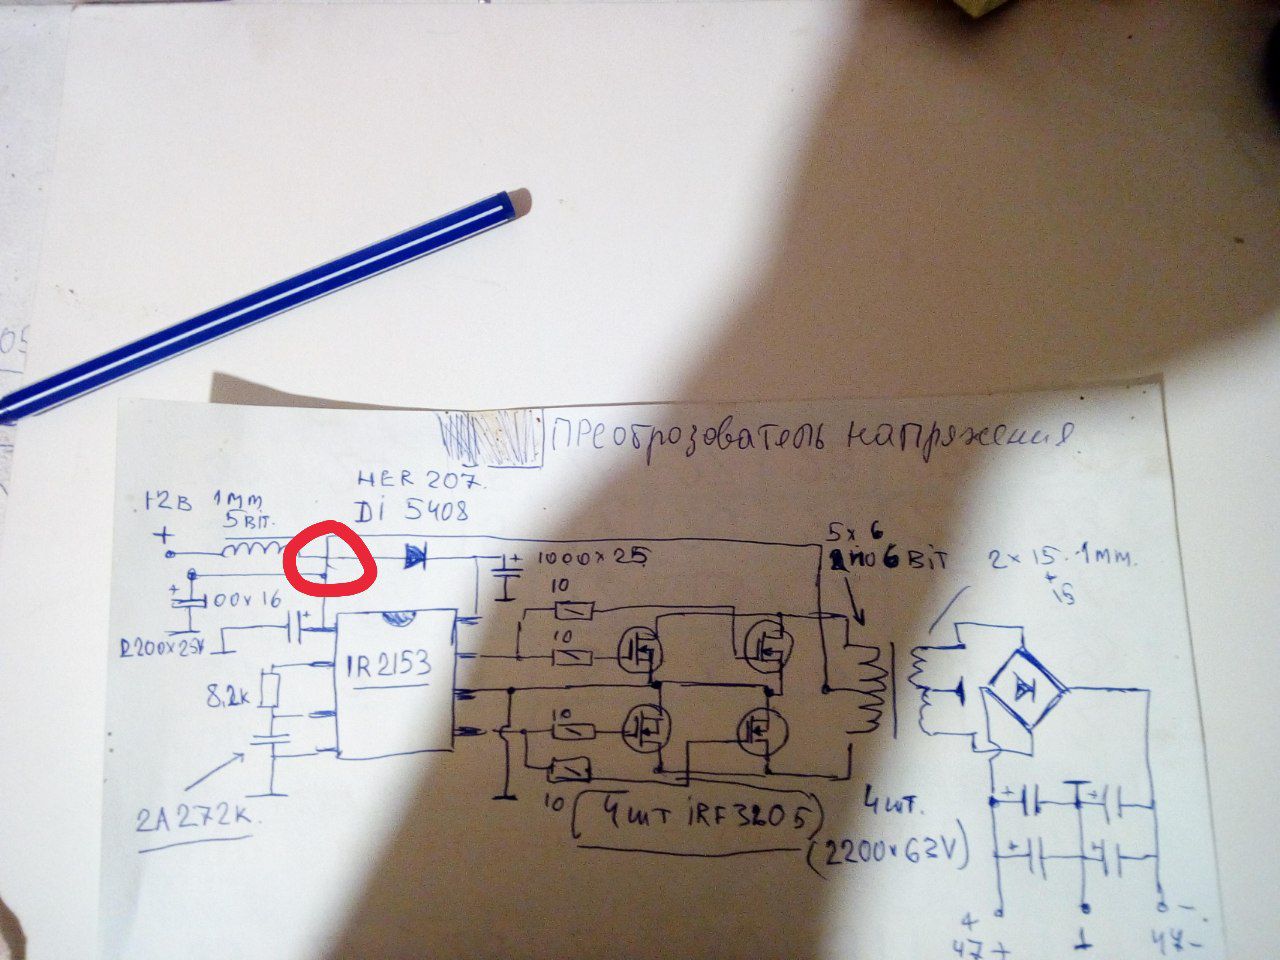 ПРЕОБРОЗОВАТЕЛЬ НАПРЯЖЕНИЯ
HER 207.
Di 5408
+2В 1мм
5 ВІТ.
+
+ 1000×25
+ 100×16
2200×25V
+
IR2153
8,2к
2А272к.
10
10
10
10
4шт iRF3205
5×6
по 6 Віт
2×15·1мм.
+
15
4шт.
(2200×63V)
+ +
+ +
+ -
47+ 47-
05